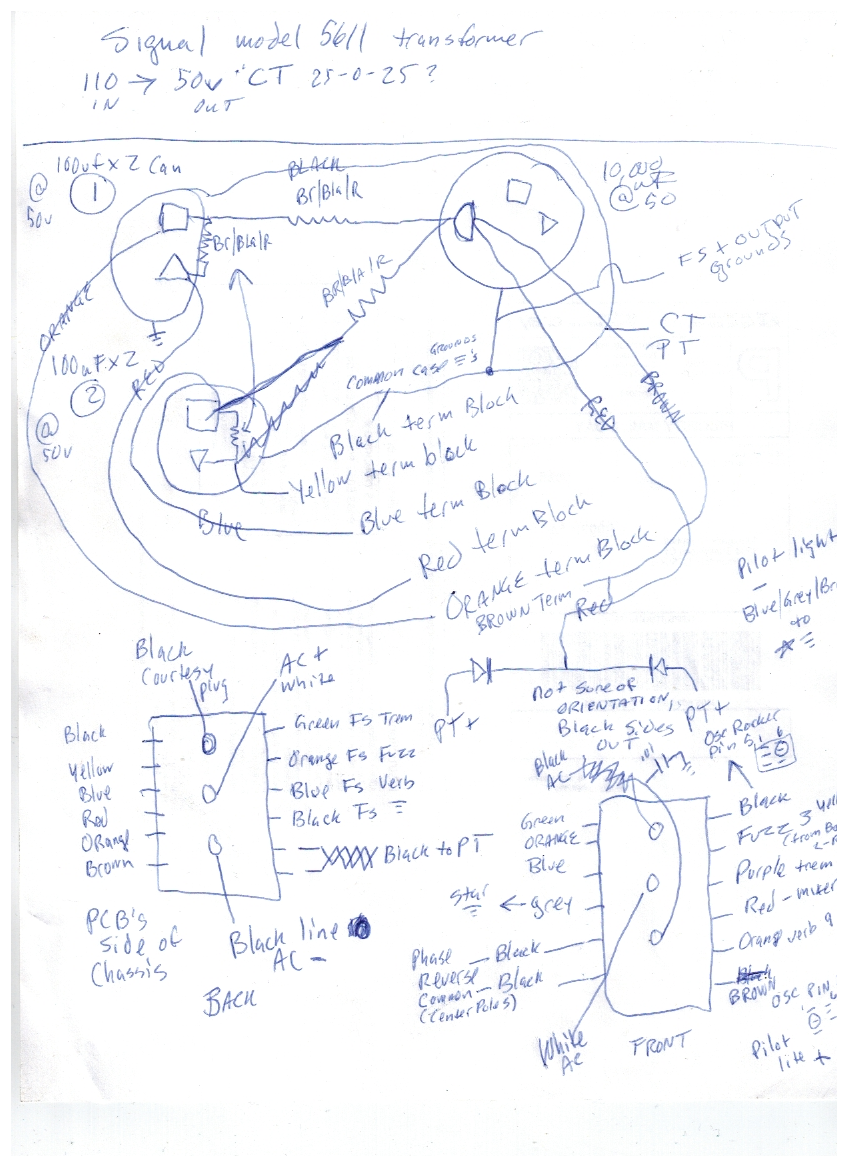 Signal model 5611 transformer
110 → 50v "CT 25-0-25?
IN OUT
100uf x 2 Can
@ 1
50v
BLACK
Br/Bla/R
10,000
uF
@ 50
Br/Bla/R
BR/BlA/R
FS + OUTPUT
Grounds
ORANGE
RED
100uF x 2
2
@
50v
GROUNDS
Common Case
CT
PT
RED
BROWN
Black term Block
Yellow term block
Blue term Block
Blue
Red term Block
ORANGE term Block
BROWN Term
Red
Pilot light
Blue/Grey/Br
to
Black
Courtesy
plug
AC +
White
PT+
Not Sure of
ORIENTATION,
Black Sides
OUT
PT+
Osc Rocker
Pin 5, 6
Black
Yellow
Blue
Red
ORang
Brown
Green Fs Trem
Orange Fs Fuzz
Blue Fs Verb
Black Fs
Black to PT
PCB's
Side of
Chassis
Black line
AC -
BACK
Black
AC
.01
Green
ORANGE
Blue
Star ← grey
Phase — Black
Reverse
Common — Black
(Center Poles)
Black
Fuzz 3 Yell
(from Bo
Purple trem
Red - mixer
Orang verb 9
Black
BROWN
OSC PIN
White
AC
FRONT
Pilot
lite +